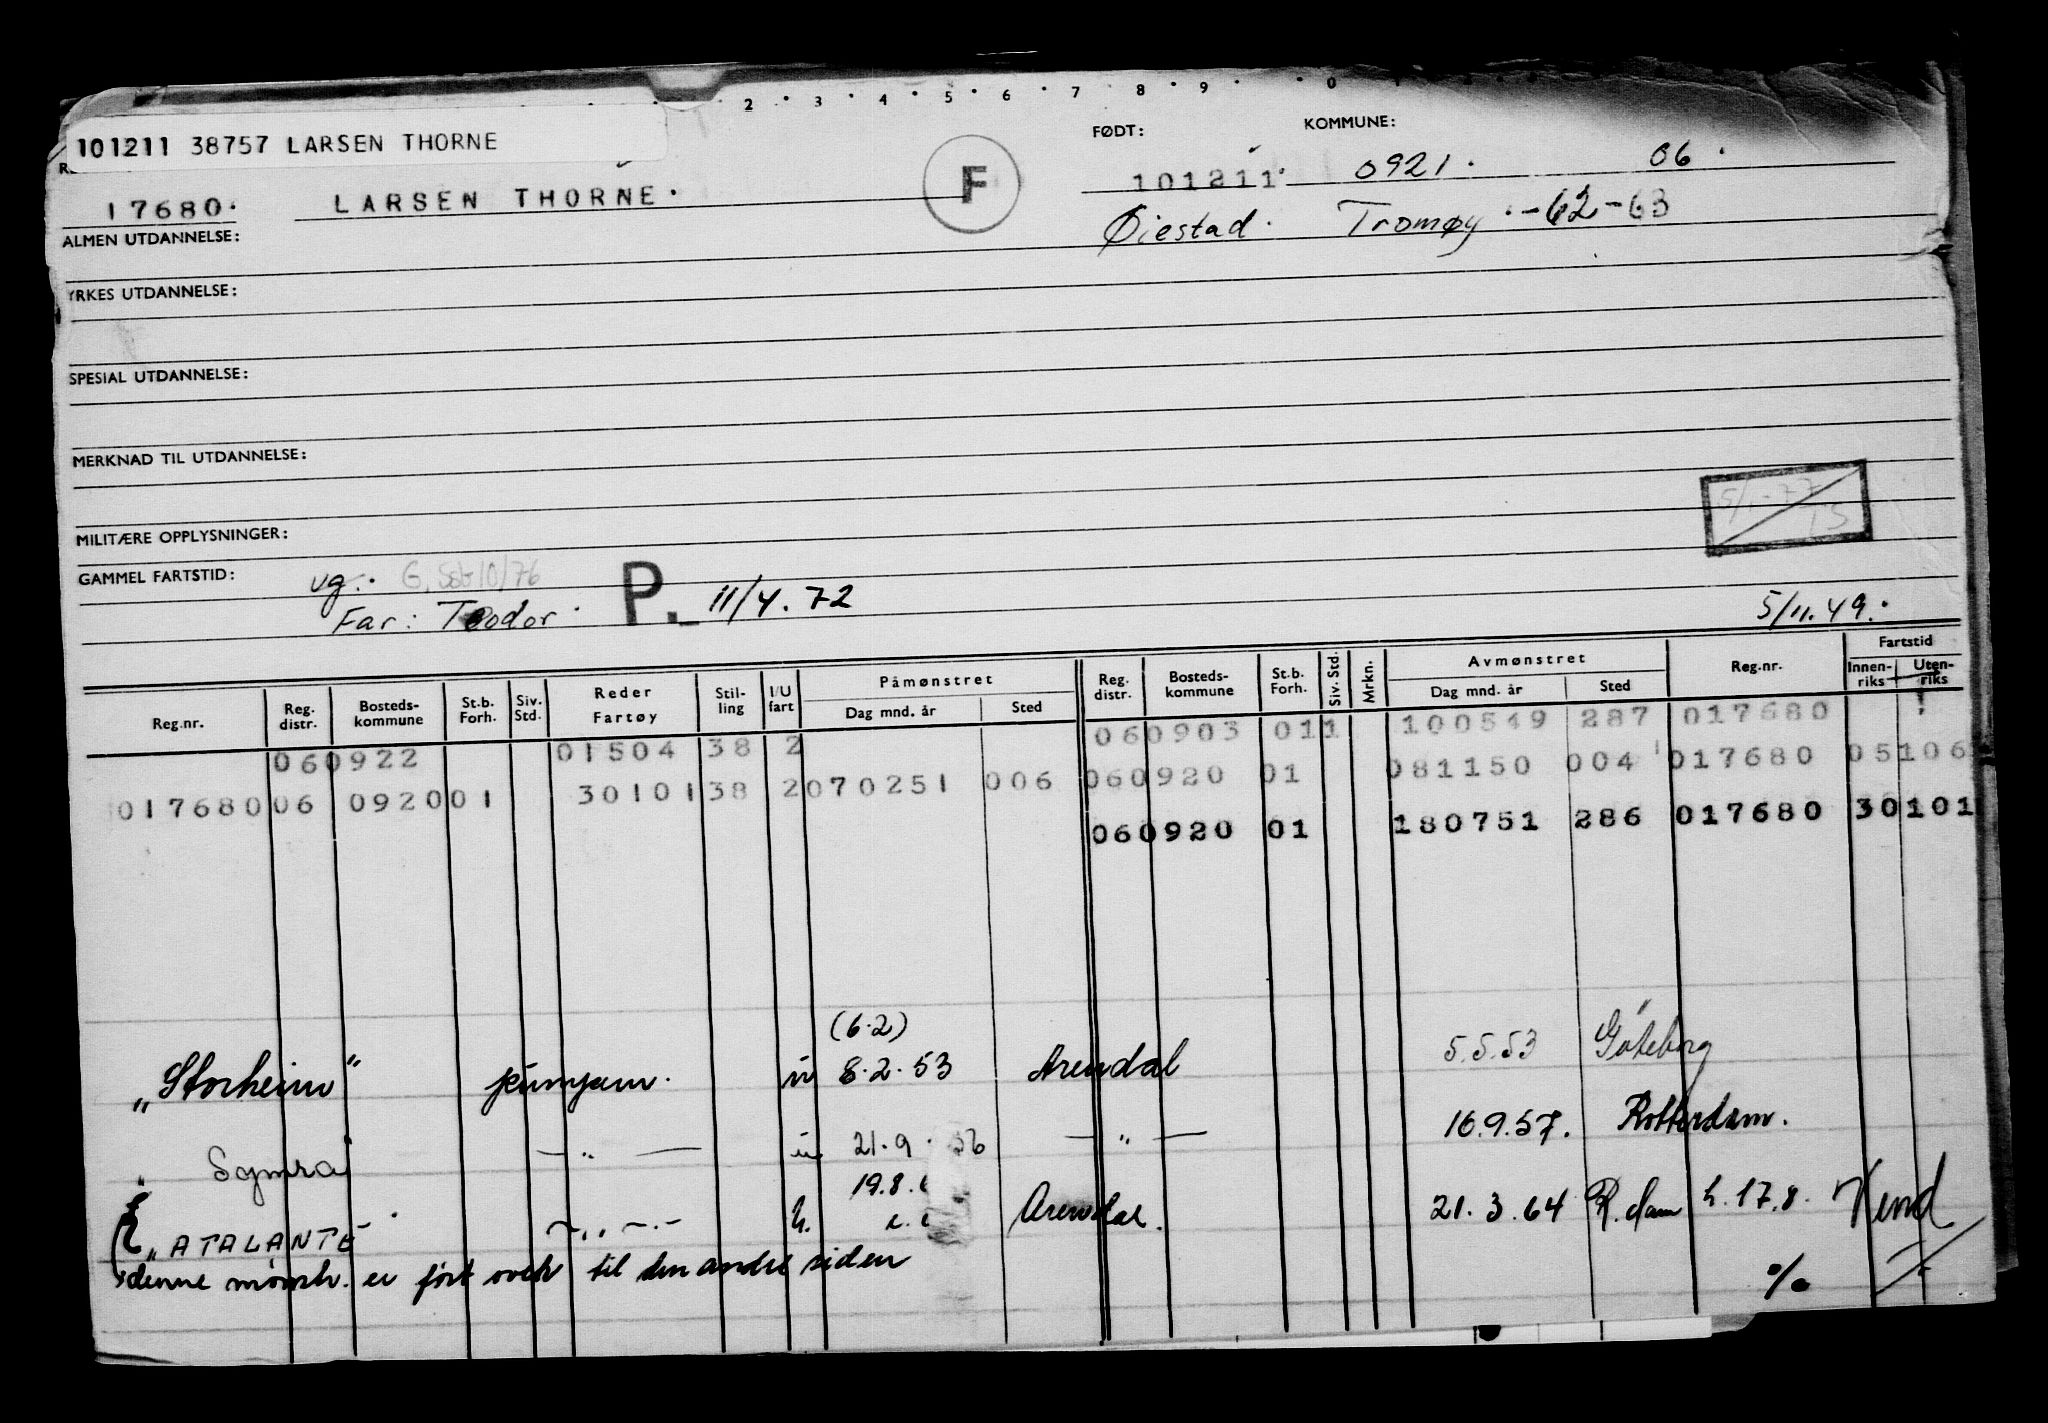 2 . 3 . 4 . 5 . 6 . 7 . 8 . 9 . . 0
101211 38757 LARSEN THORNE
FØDT: KOMMUNE:
17680. LARSEN THORNE. F 101211. 0921. 06.
Øiestad. Tromøy.-62-63
ALMEN UTDANNELSE:
YRKES UTDANNELSE:
SPESIAL UTDANNELSE:
MERKNAD TIL UTDANNELSE:
5/1-77
MILITÆRE OPPLYSNINGER:
GAMMEL FARTSTID: ug.
Far: Teodor. P. 11/4.72 5/11.49.
Påmønstret Avmønstret Fartstid
Reg.nr. Reg. distr. Bosteds-kommune St.b. Forh. Siv. Std. Reder Fartøy Stil-ling I/U fart Dag mnd. år Sted Reg. distr. Bosteds-kommune St.b. Forh. Siv. Std. Mrkn. Dag mnd. år Sted Reg.nr. Innen-riks Uten-riks
060922 01504 38 2 060903 011 100549 287 017680
017680 06 0920 01 30101 38 2 070251 006 060920 01 081150 004 017680 05106
060920 01 180751 286 017680 30101
(6.2)
"Storheim" pumpem. u 8.2.53 Arendal 5.5.53 Göteborg
" Symra " — " — u 21.9. 56 — " — 16.9.57. Rotterdam.
19.8.
"ATALANTE" — " — u. Arendal. 21.3.64 R.dam h.17.8. Vend
denne mønstr. er ført over til den andre siden %